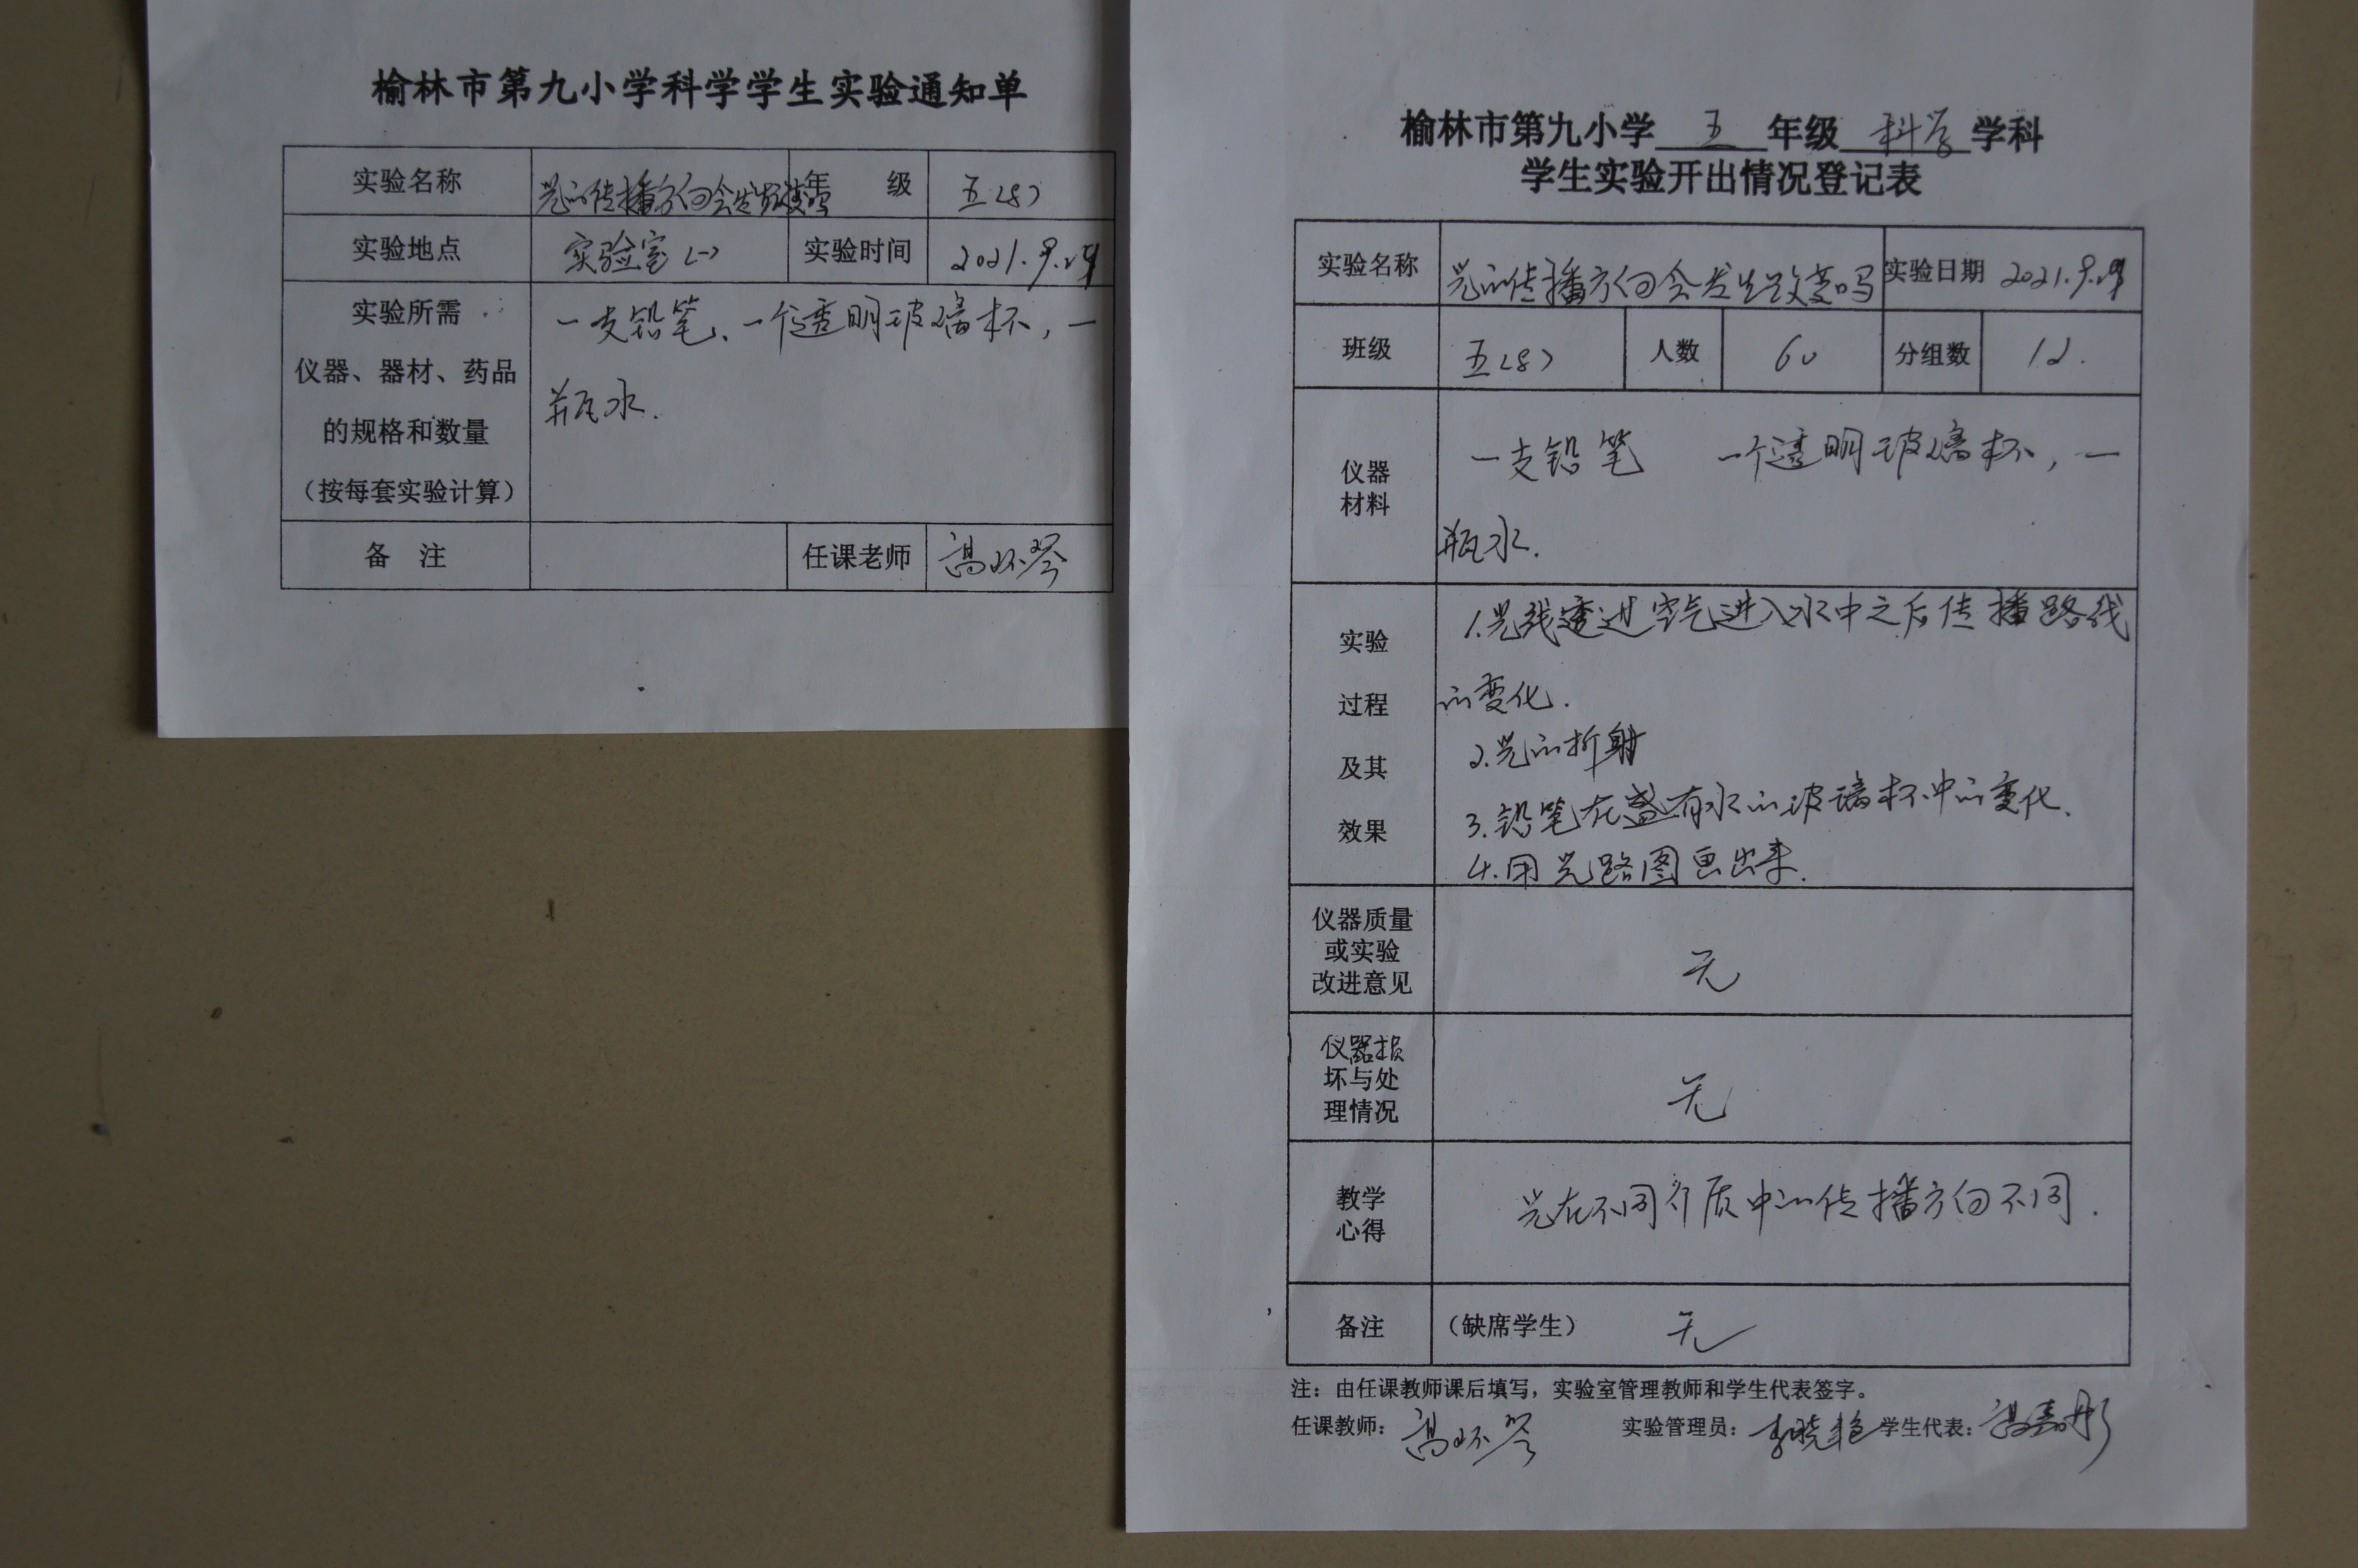 榆林市第九小学科学学生实验通知单
实验名称 光的传播方向会发生改变吗 年 级 五(8)
实验地点 实验室(一) 实验时间 2021.9.
实验所需
仪器、器材、药品
的规格和数量
(按每套实验计算)
一支铅笔、一个透明玻璃杯,一
瓶水.
备 注 任课老师 高怀琴
榆林市第九小学 五 年级 科学 学科
学生实验开出情况登记表
实验名称 光的传播方向会发生改变吗 实验日期 2021.9.
班级 五(8) 人数 60 分组数 12.
仪器
材料
一支铅笔 一个透明玻璃杯,一
瓶水.
实验
过程
及其
效果
1.光线透过空气进入水中之后传播路线
的变化.
2.光的折射
3.铅笔在盛有水的玻璃杯中的变化.
4.用光路图画出来.
仪器质量
或实验
改进意见
无
仪器损
坏与处
理情况
无
教学
心得
光在不同介质中的传播方向不同.
备注 (缺席学生) 无
注:由任课教师课后填写,实验室管理教师和学生代表签字。
任课教师:高怀琴 实验管理员:李晓艳 学生代表: